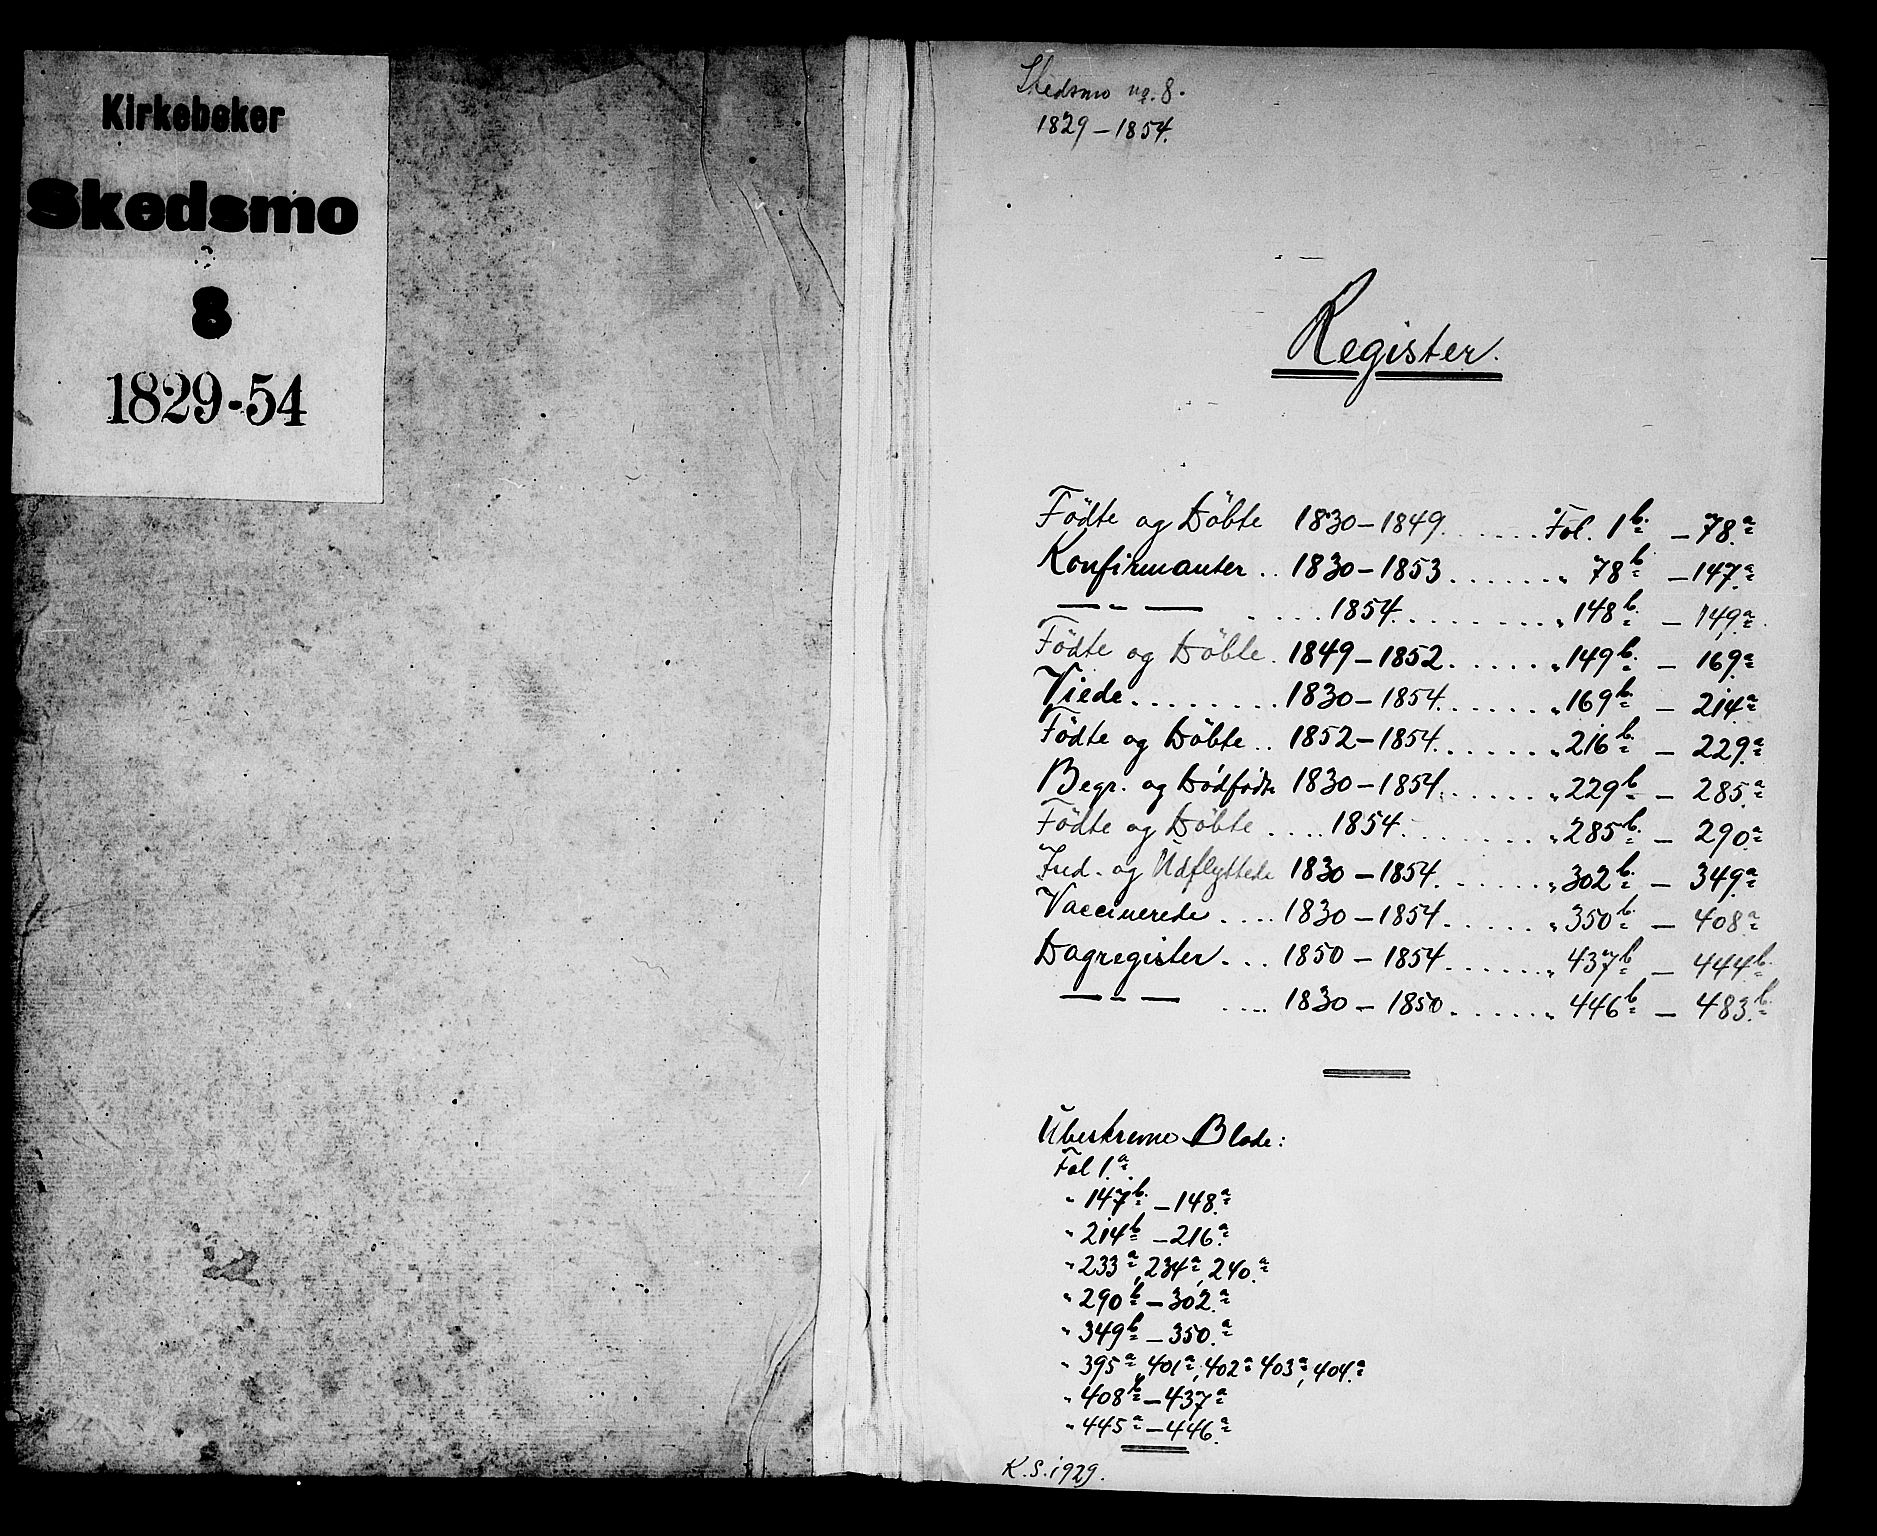 Kirkebøker
Skedsmo
8
1829-54
Skedsmo nq. 8.
1829 – 1854.
Register.
Födte og Döbte 1830 – 1849. . . . . . . Fol. 1b. – 78.a
Konfirmanter . . 1830 – 1853 . . . . . . . „ 78b – 147.a
— - — . . . . 1854. . . . . . . . . . „ 148b. – 149.a
Födte og Döbte . 1849 – 1852. . . . . . . „ 149b. – 169.a
Viede . . . . . . . . 1830 – 1854. . . . . . . „ 169b – 214a
Födte og Döbte . . 1852 – 1854. . . . . . . „ 216b. – 229.a
Begr. og Dödfödte 1830 – 1854. . . . . . . „ 229b – 285.a
Födte og Döbte . . . . 1854. . . . . . . . „ 285b. – 290.a
Ind. og Udflyttede 1830 – 1854. . . . . . . „ 302b. – 349.a
Vaccinerede . . . . 1830 – 1854 . . . . . . . „ 350b. – 408a
Dagregister . . . 1850 – 1854 . . . . . . . „ 437b – 444b.
— - — . . . . 1830 – 1850 . . . . . . . „ 446b – 483.b.
Ubeskrevne Blade:
Fol 1.a
„ 147b. – 148.a
„ 214b – 216.a
„ 233a, 234a, 240.a
„ 290b – 302.a
„ 349b – 350.a
„ 395a, 401a, 402a 403a, 404.a
„ 408b – 437a
„ 445a – 446.a
K. S. 1929.